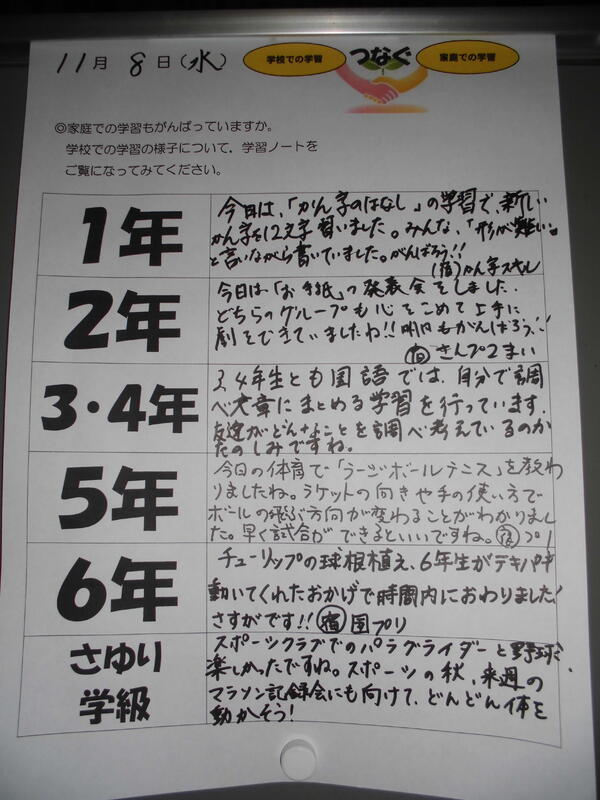 11月 8日(水)
学校での学習
つなぐ
家庭での学習
◎家庭での学習もがんばっていますか。
学校での学習の様子について、学習ノートを
ご覧になってみてください。
1年
今日は、「かん字のはなし」の学習で、新しい
かん字を12文字習いました。みんな、「形が難しい。」
と言いながら書いていました。がんばろう!!
(宿)かん字スキル
2年
今日は「お手紙」の発表会をしました.
どちらのグループも心をこめて上手に
劇をできていましたね!!明日もがんばろう!!
宿 さんプ2まい
3・4年
3、4年生とも国語では、自分で調
べ文章にまとめる学習を行っています.
友達がどんなことを調べ考えているのか
たのしみですね。
5年
今日の体育で「ラージボールテニス」を教わ
りましたね。ラケットの向きや手の使い方で
ボールの飛ぶ方向が変わることがわかりまし
た。早く試合ができるといいですね。宿プリ
6年
チューリップの球根植え、6年生がテキパキ
動いてくれたおかげで時間内におわりました!
さすがです!!宿国プリ
さゆり
学級
スポーツクラブでのパラグライダーと野球、
楽しかったですね。スポーツの秋、来週の
マラソン記録会にも向けて、どんどん体を
動かそう!